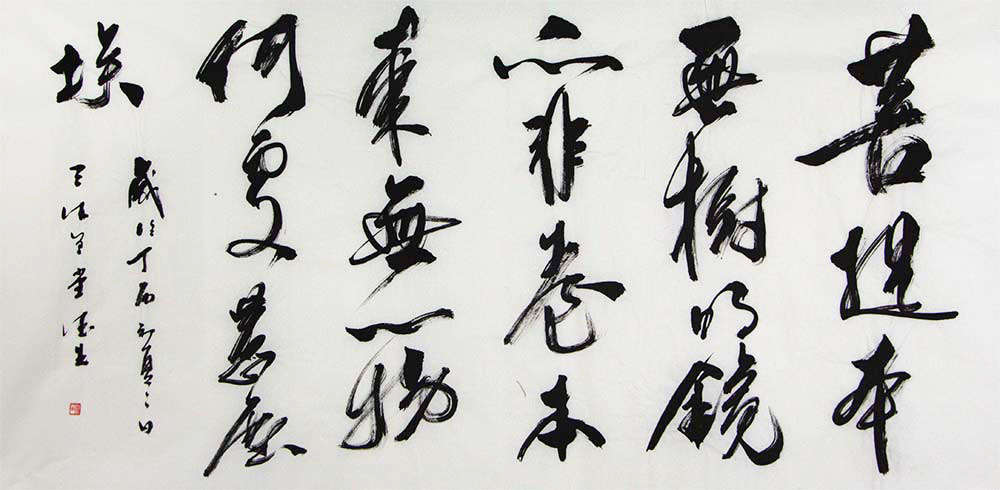 菩提本
無樹明鏡
亦非臺本
來無一物
何處惹塵
埃
歲次丁酉初夏之日
堂